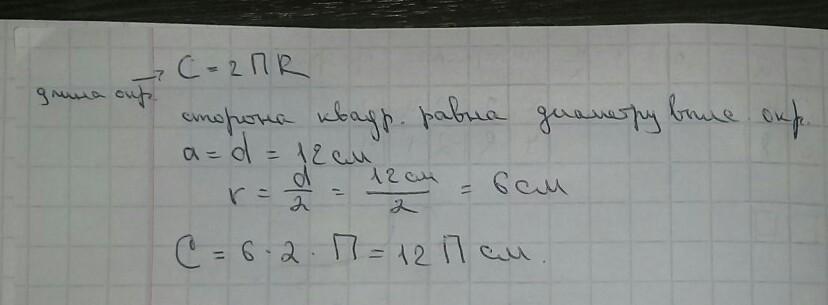 C = 2ПR
длина окр.
сторона квадр. равна диаметру впис. окр.
a = d = 12 см
r = d/2 = 12 см/2 = 6 см
C = 6 · 2 · П = 12 П см.